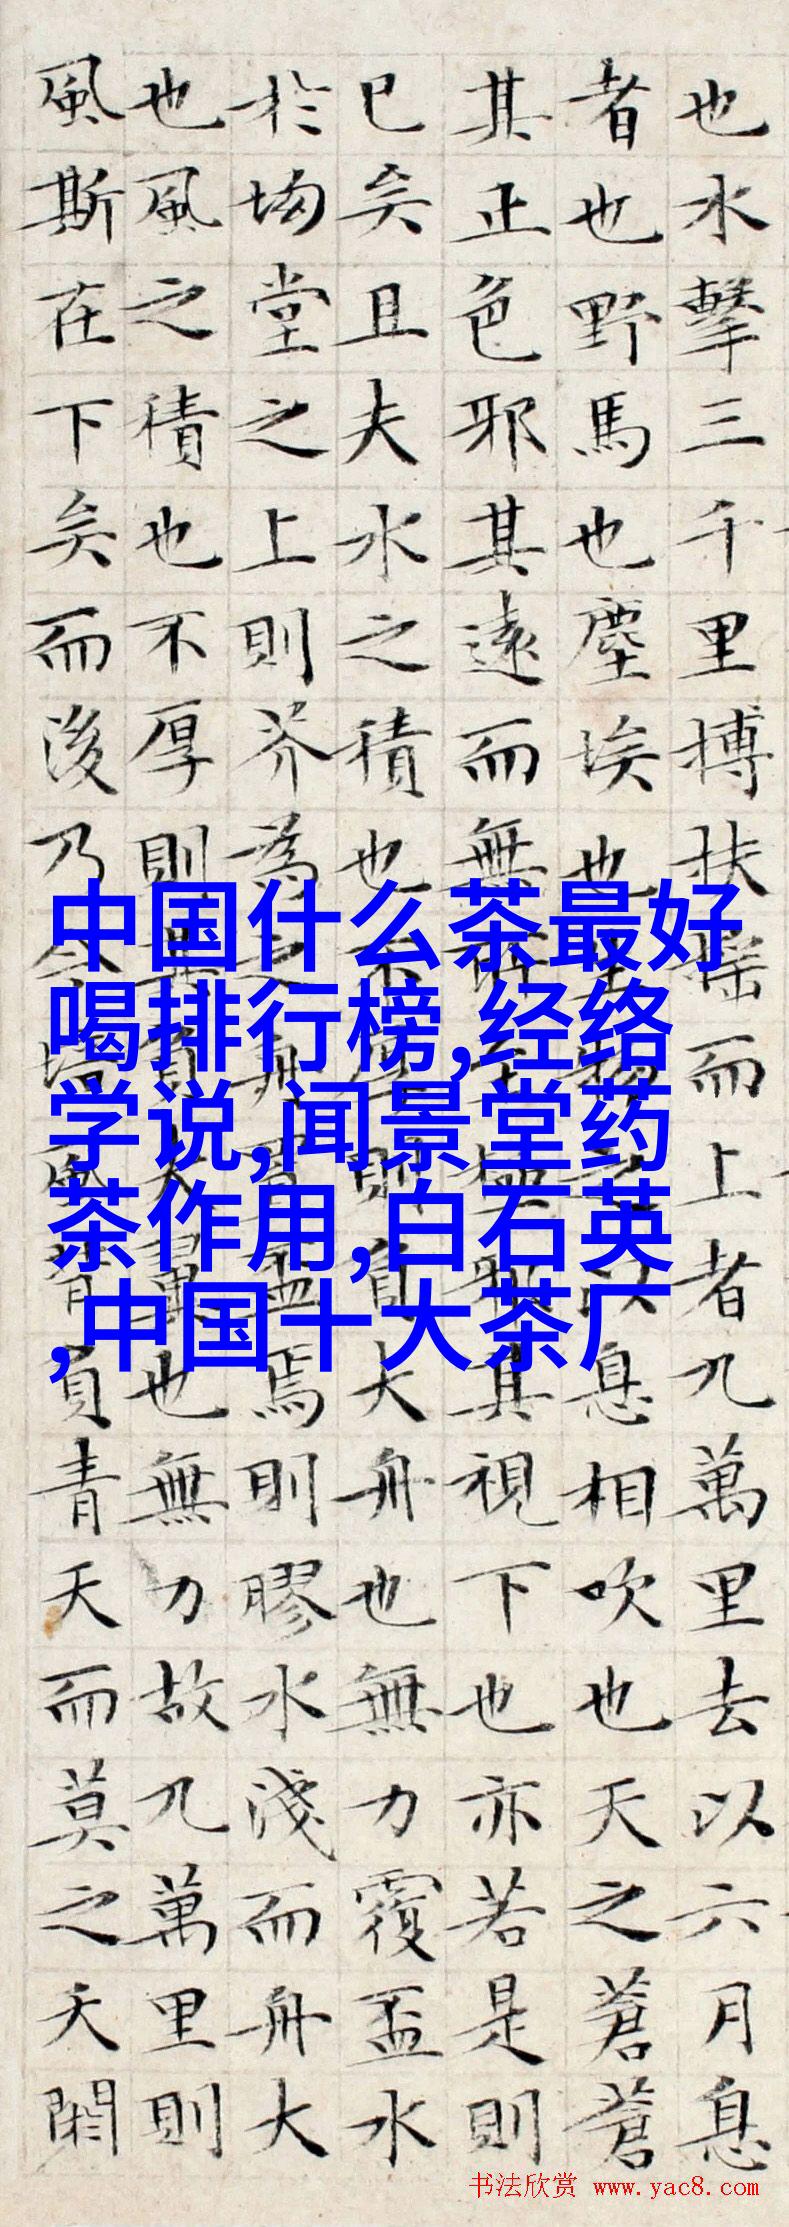 也水擊三千里搏扶搖而上者九萬里去以六月息
者也野馬也塵埃也生物之以息相吹也天之蒼蒼
其正色邪其遠而無所至極邪其視下也亦若是則
已矣且夫水之積也不厚則負大舟也無力覆盃水
於坳堂之上則芥為之舟置盃焉則膠水淺而舟大
也風之積也不厚則其負大翼也無力故九萬里則
風斯在下矣而後乃今培風背負青天而莫之夭閼
中国什么茶最好
喝排行榜,经络
学说,闻景堂药
茶作用,白石英
,中国十大茶厂
书法欣赏 www.yac8.com